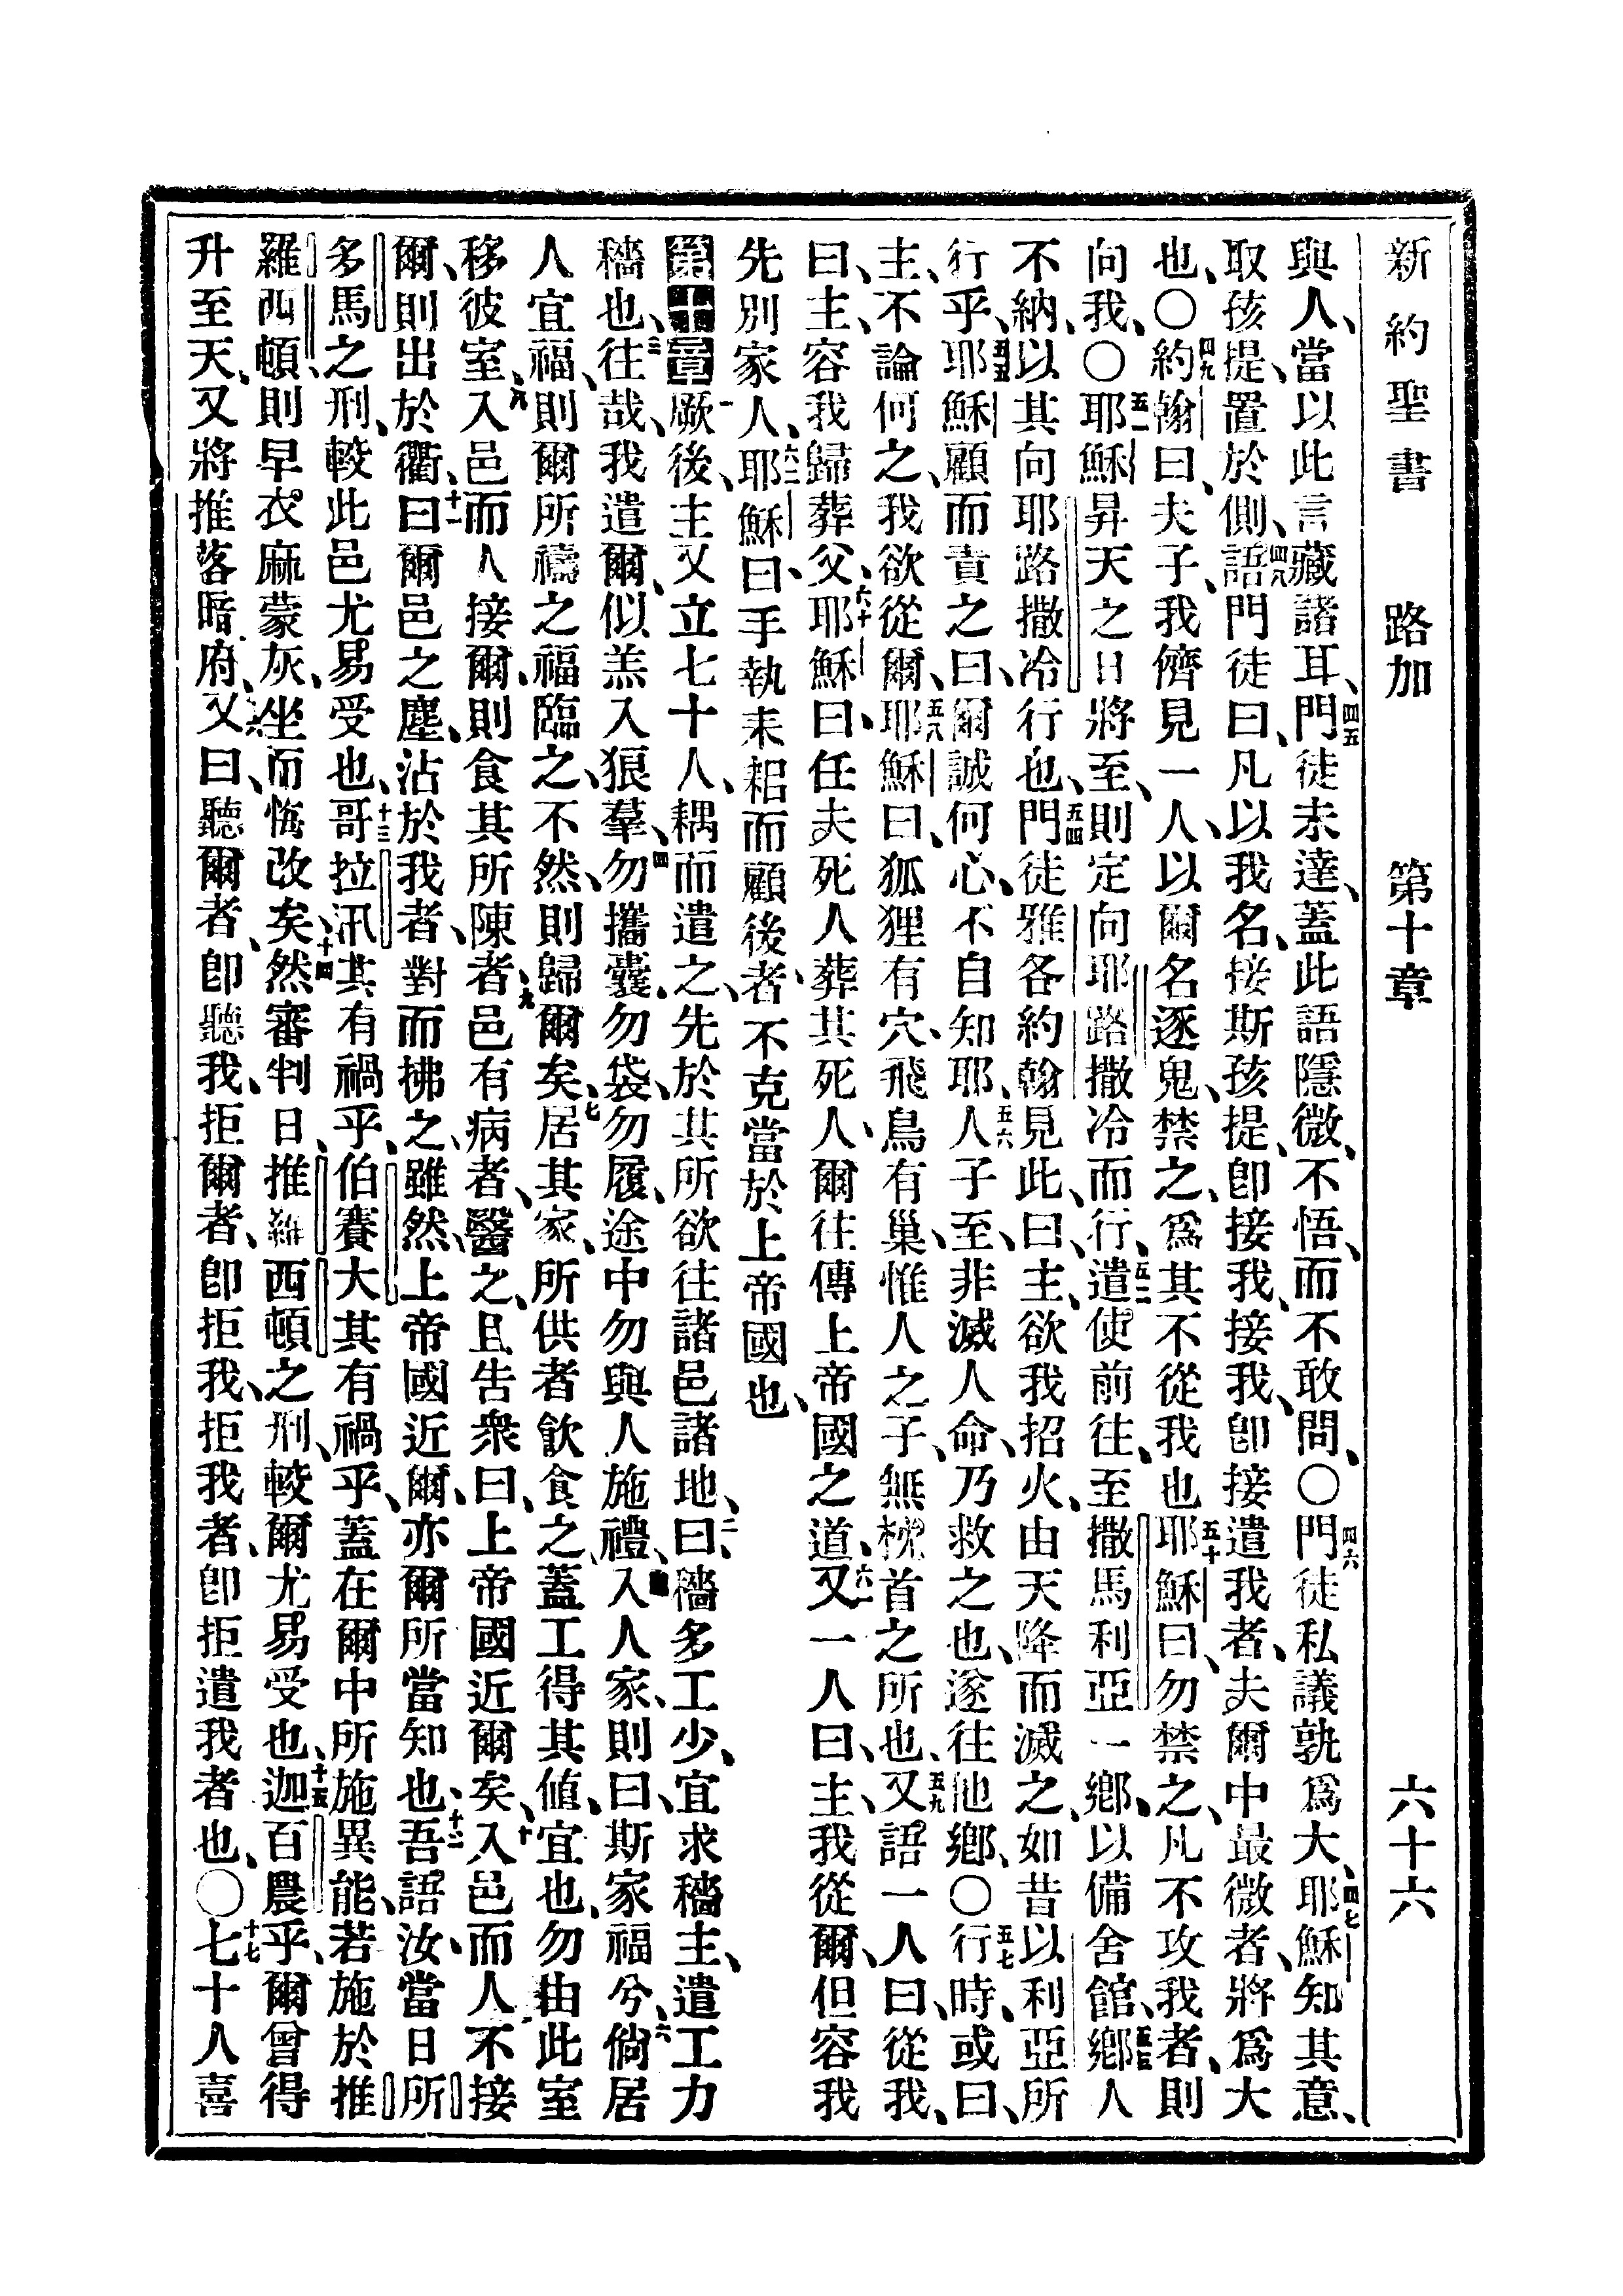 新約聖書 路加 第十章 六十六
與人、當以此言藏諸耳、四五門徒未達、蓋此語隱微、不悟、而不敢問、〇四六門徒私議孰爲大、四七耶穌知其意、
取孩提、置於側、四八語門徒曰、凡以我名、接斯孩提、卽接我、接我、卽接遣我者、夫爾中最微者、將爲大
也、〇四九約翰曰、夫子、我儕見一人、以爾名逐鬼、禁之、爲其不從我也五十耶穌曰、勿禁之、凡不攻我者、則
向我、〇五一耶穌昇天之日將至、則定向耶路撒冷而行、五二遣使前往、至撒馬利亞一鄉、以備舍館、五三鄉人
不納、以其向耶路撒冷行也、五四門徒雅各約翰見此、曰、主、欲我招火、由天降而滅之、如昔以利亞所
行乎、五五耶穌顧而責之曰、爾誠何心、不自知耶、五六人子至、非滅人命、乃救之也、遂往他鄉、〇五七行時、或曰、
主、不論何之、我欲從爾、五八耶穌曰、狐狸有穴、飛鳥有巢、惟人之子、無枕首之所也、五九又語一人曰、從我、
曰、主、容我歸葬父、六十耶穌曰、任夫死人葬其死人、爾往傳上帝國之道、六一又一人曰、主、我從爾、但容我
先別家人、六二耶穌曰、手執耒耜而顧後者、不克當於上帝國也、
第十章一厥後、主又立七十人、耦而遣之、先於其所欲往諸邑諸地、二曰、穡多工少、宜求穡主、遣工力
穡也、三往哉、我遣爾、似羔入狼羣、四勿攜囊、勿袋、勿履、途中勿與人施禮、五入人家、則曰、斯家福兮、六倘居
人宜福、則爾所禱之福臨之、不然、則歸爾矣、七居其家、所供者飮食之、蓋工得其値、宜也、勿由此室
移彼室、八入邑而人接爾、則食其所陳者、九邑有病者、醫之、且告衆曰、上帝國近爾矣、十入邑而人不接
爾、則出於衢、曰十一爾邑之塵、沾於我者、對而拂之、雖然、上帝國近爾、亦爾所當知也、十二吾語汝、當日所
多馬之刑、較此邑尤易受也、十三哥拉汛其有禍乎、伯賽大其有禍乎、蓋在爾中所施異能、若施於推
羅西頓、則早衣麻蒙灰、坐而悔改矣、十四然審判日、推羅西頓之刑、較爾尤易受也、十五迦百農乎、爾曾得
升至天、又將推落暗府、十六又曰、聽爾者、卽聽我、拒爾者、卽拒我、拒我者、卽拒遣我者也、〇十七七十人喜